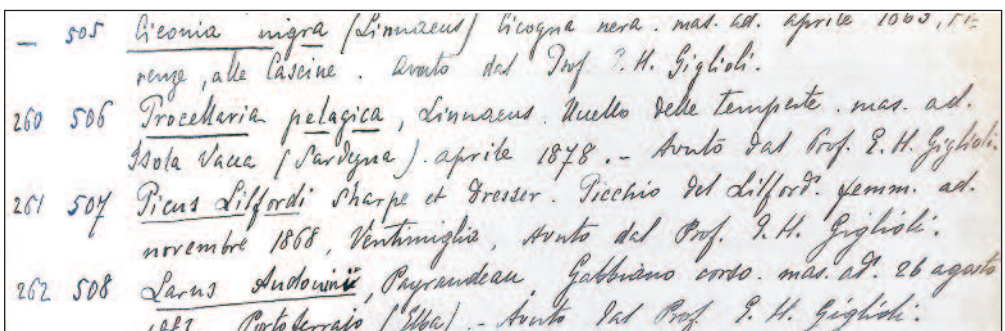 — 505 Ciconia nigra (Linnaeus) Cicogna nera. mas. ad. aprile Fi-
renze, alle Cascine. Avuto dal Prof. E. H. Giglioli.
260 506 Procellaria pelagica, Linnaeus. Uccello delle tempeste. mas. ad.
Isola Vacca (Sardegna). aprile 1878. - Avuto dal Prof. E. H. Giglioli.
261 507 Picus Lilfordi Sharpe et Dresser. Picchio del Lilford. femm. ad.
novembre 1868, Ventimiglia, Avuto dal Prof. E. H. Giglioli.
262 508 Larus Audouinii, Payraudeau, Gabbiano corso. mas. ad. 26 agosto
Portoferrajo (Elba). - Avuto dal Prof. E. H. Giglioli.